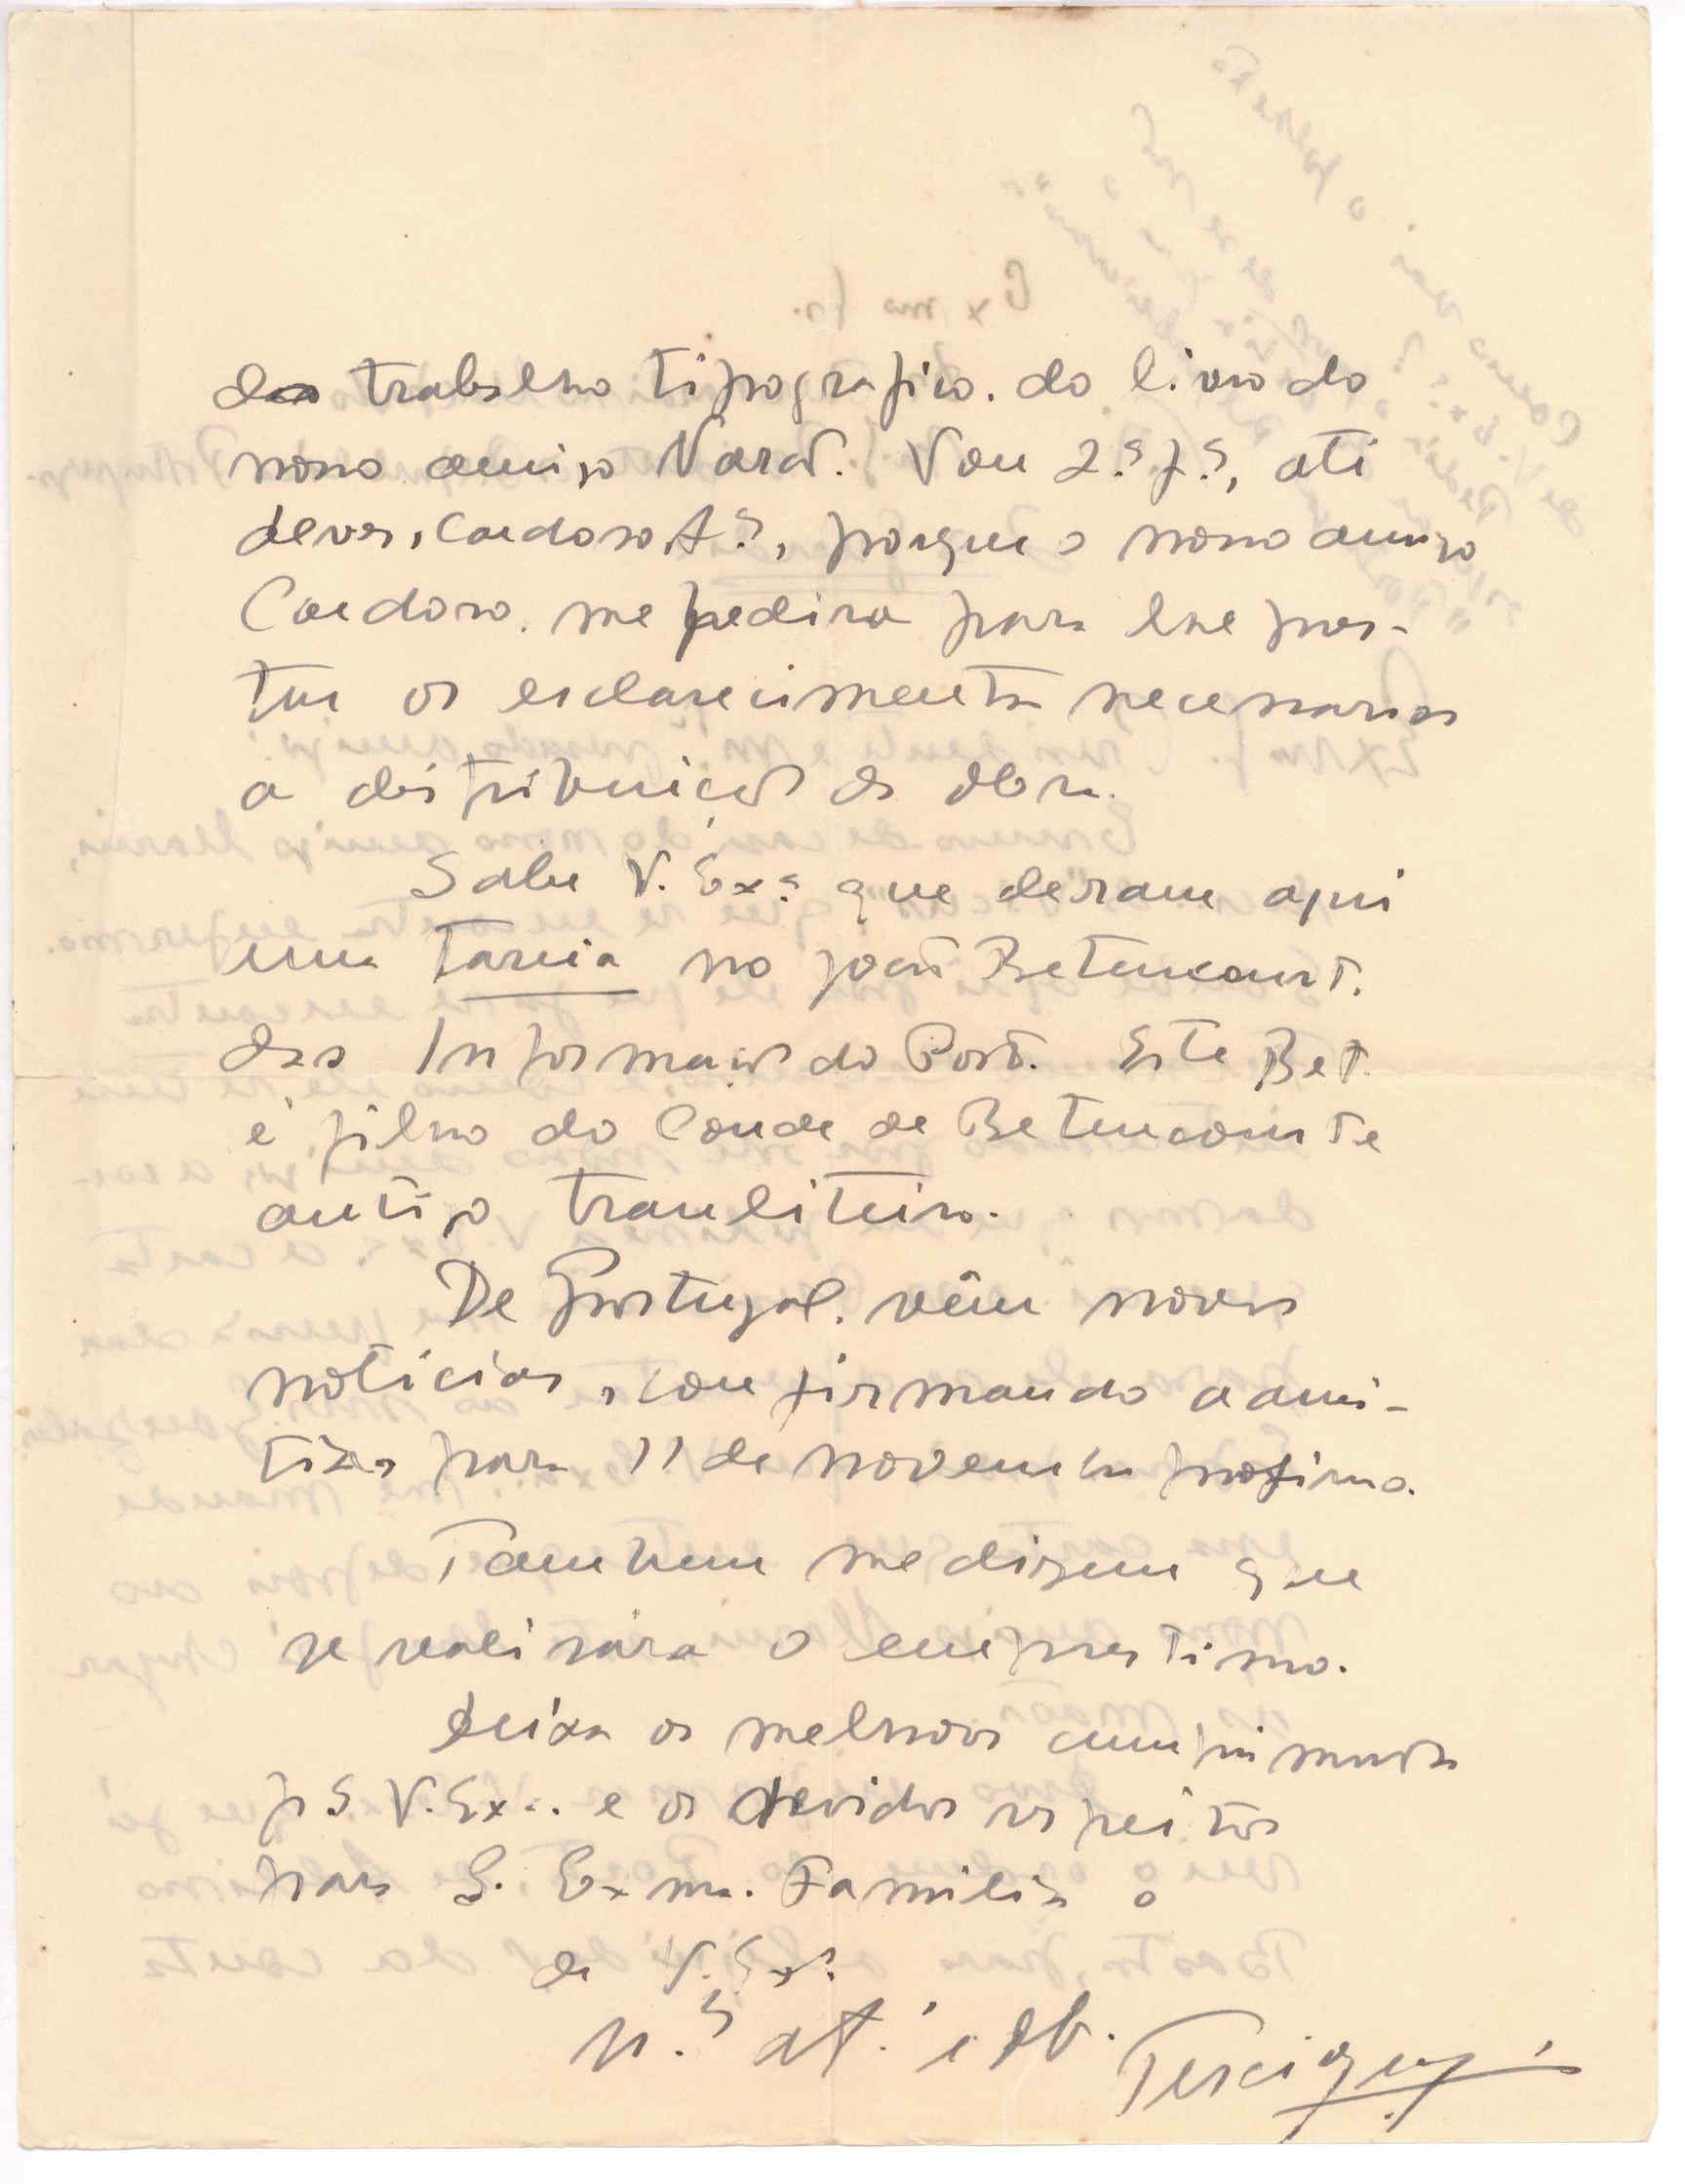 do trabalho tipografico. do livro do
nosso amigo Vou 2.ª fª, até
Cardoso, porque o nosso amigo
Cardoso. me pedira para lhe pres-
tar os esclarecimentos necessarios
a distribuição da obra.
Sabe V. Exª que deram aqui
uma tareia no João Betencourt.
das Informações do Port. Este Bet.
é filho do Conde de Betencourte
antigo trauliteiro.
De Portugal. vêm novas
noticias, confirmando a ami-
tia para 11 de novembro proximo.
Tambem me dizem que
se realisará o emprestimo.
Deixa os melhores cumprimentos
pª V. Exª. e os devidos respeitos
para S. Exma. Familia o
de V. Exª
at. e